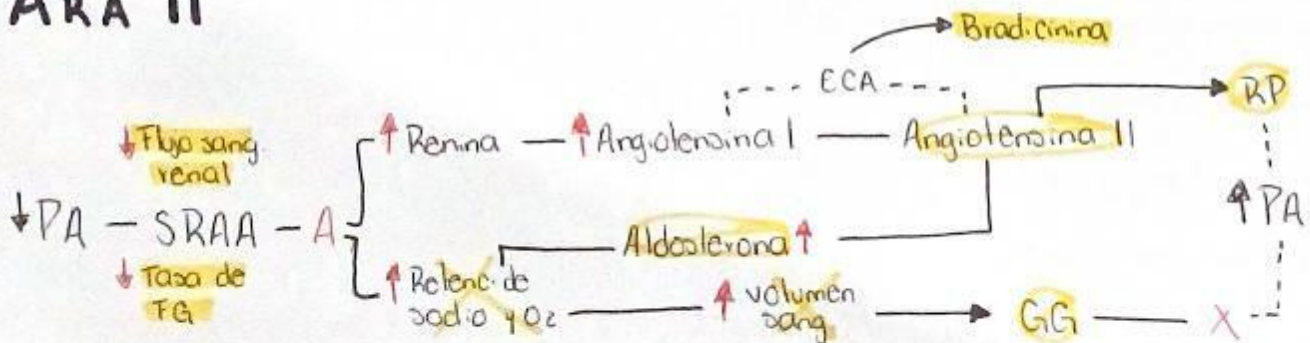 ARA II
Bradicinina
ECA
RP
↓ Flujo sang.
renal
↑ Renina — ↑ Angiotensina I — Angiotensina II
↓ PA — SRAA — A
↑ PA
Aldosterona ↑
↓ Tasa de
FG
↑ Retenc. de
sodio y O2
↑ volumen
sang
GG — X